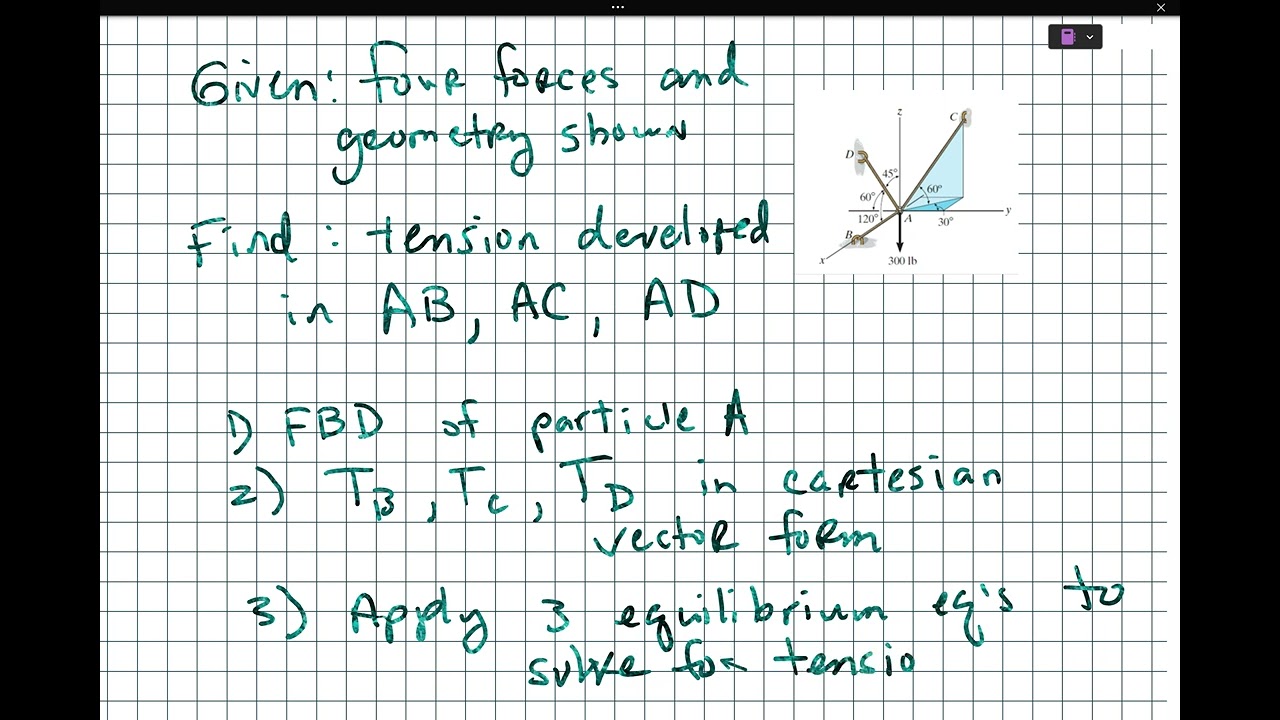 Given: four forces and
geometry shown
Find: tension developed
in AB, AC, AD
z
C
D
45°
60°
60°
y
120°
A
30°
B
x
300 lb
1) FBD of particle A
2) TB, TC, TD in cartesian
vector form
3) Apply 3 equilibrium eq's to
solve for tensio